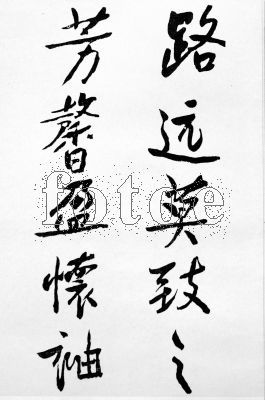 路远莫致之
芳馨盈懷袖
fotoe